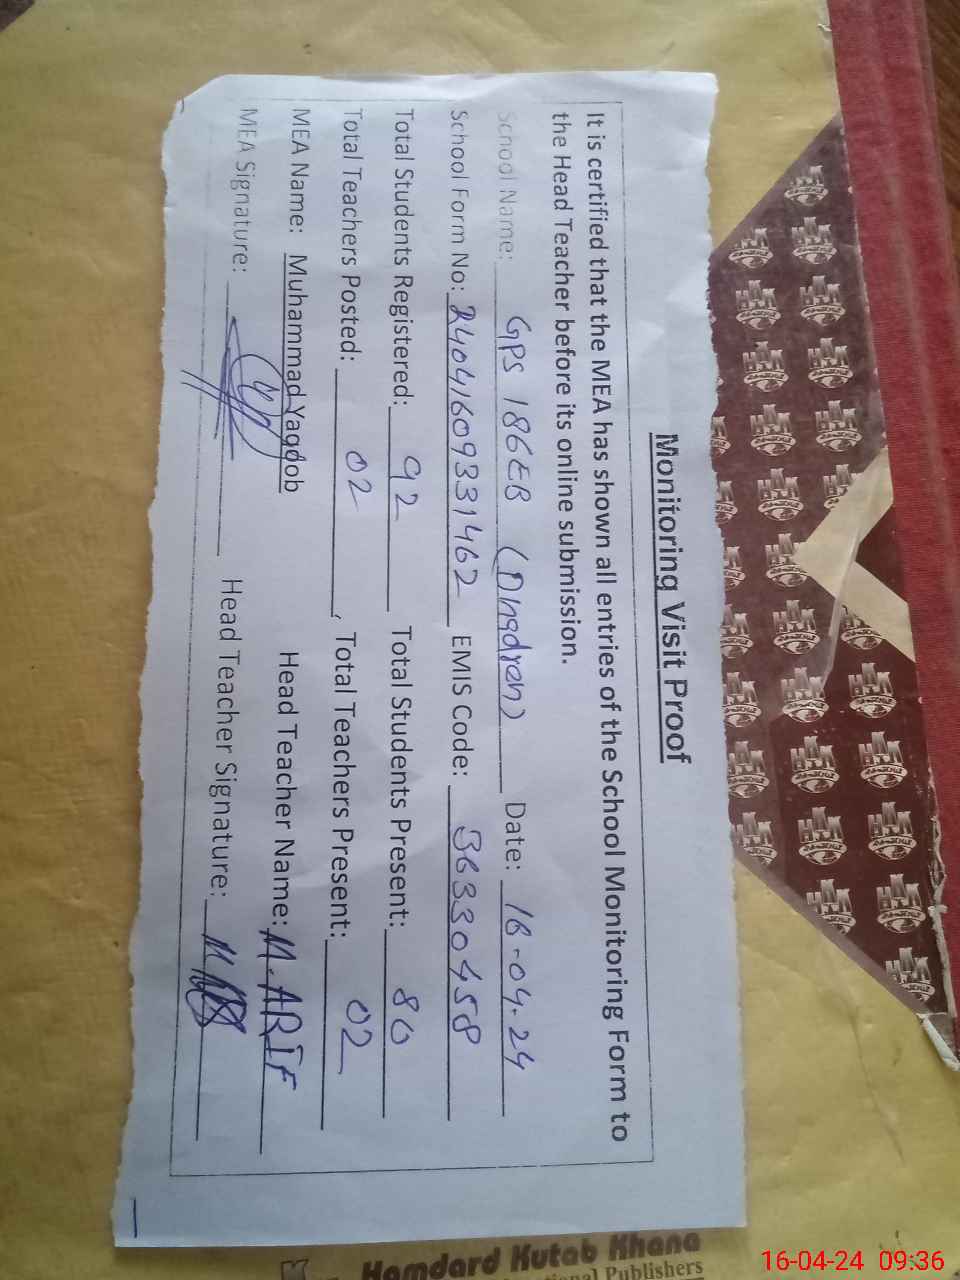 Monitoring Visit Proof
It is certified that the MEA has shown all entries of the School Monitoring Form to
the Head Teacher before its online submission.
School Name: GPS 186EB Date: 16-04-24
School Form No: 24041609331462 EMIS Code: 36330458
Total Students Registered: 92 Total Students Present: 80
Total Teachers Posted: 02, Total Teachers Present: 02
MEA Name: Muhammad Yaqoob Head Teacher Name: M. ARIF
MEA Signature: Head Teacher Signature:
Hamdard Kutab Khana
Publishers
16-04-24 09:36